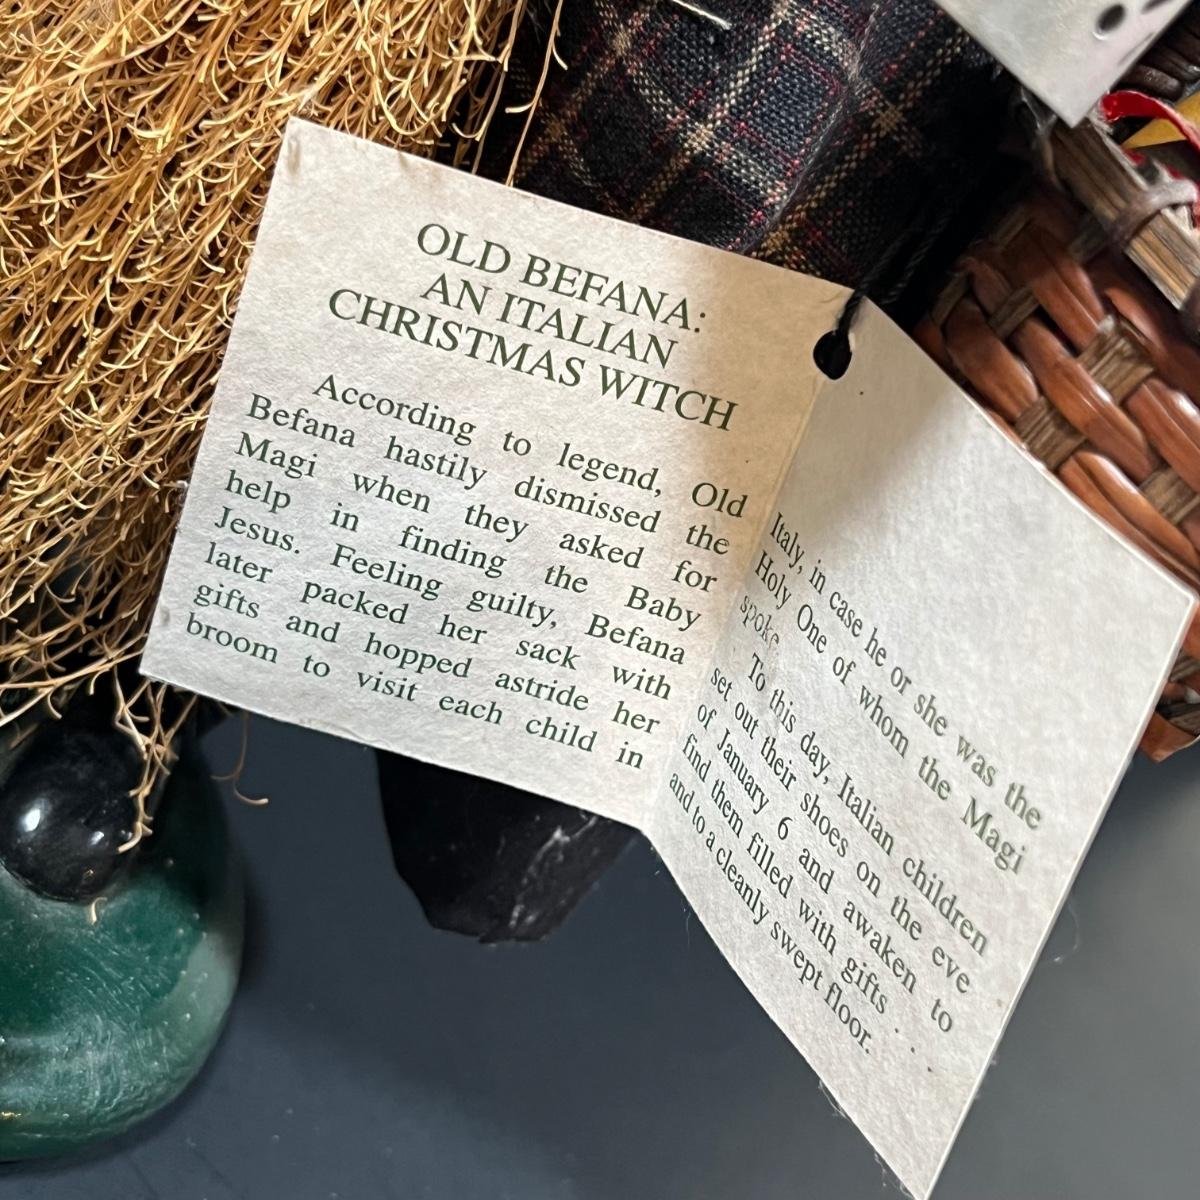 OLD BEFANA:
AN ITALIAN
CHRISTMAS WITCH
According to legend, Old
Befana hastily dismissed the
Magi when they asked for
help in finding the Baby
Jesus. Feeling guilty, Befana
later packed her sack with
gifts and hopped astride her
broom to visit each child in
Italy, in case he or she was the
Holy One of whom the Magi
spoke.
To this day, Italian children
set out their shoes on the eve
of January 6 and awaken to
find them filled with gifts . . .
and to a cleanly swept floor.